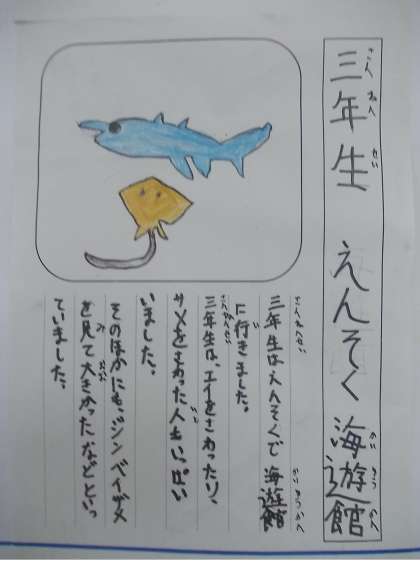 三年生 えんそく 海遊館
三年生はえんそくで 海遊館
に行きました。
三年生は、エイをさわったり、
サメをさわった人もいっぱい
いました。
そのほかにも、ジンベイザメ
を見て大きかったなどといっ
ていました。